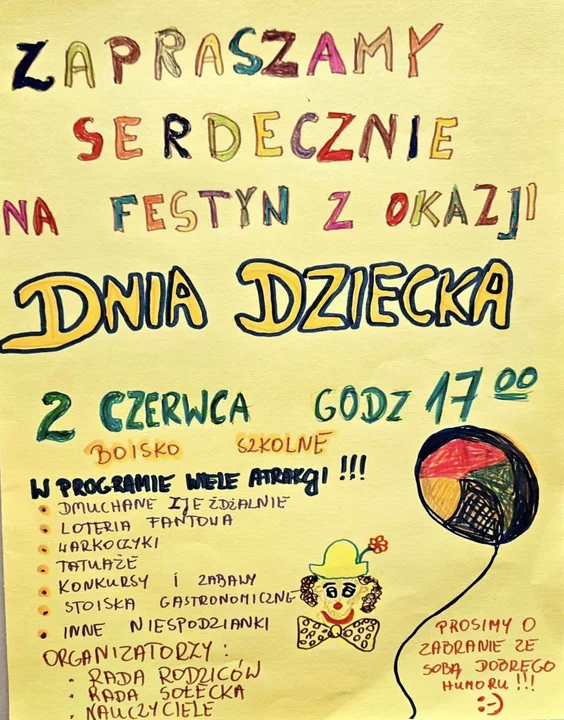 ZAPRASZAMY
SERDECZNIE
NA FESTYN Z OKAZJI
DNIA DZIECKA
2 CZERWCA GODZ 17 00
BOISKO SZKOLNE
W PROGRAMIE WIELE ATRAKCJI !!!
• DMUCHANE ZJEŻDŻALNIE
• LOTERIA FANTOWA
• WARKOCZYKI
• TATUAŻE
• KONKURSY I ZABAWY
• STOISKA GASTRONOMICZNE
• INNE NIESPODZIANKI
ORGANIZATORZY:
• RADA RODZICÓW
• RADA SOŁECKA
• NAUCZYCIELE
PROSIMY O
ZABRANIE ZE
SOBĄ DOBREGO
HUMORU !!!
:-)